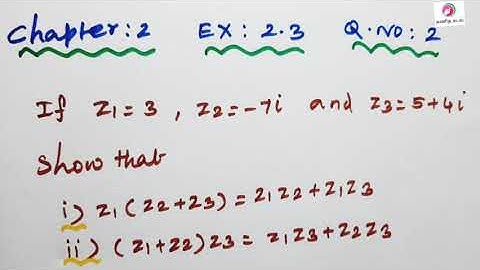 Chapter:2 EX: 2.3 Q.NO: 2
If z1=3, z2=-7i and z3=5+4i
Show that
i) z1(z2+z3)=z1z2+z1z3
ii) (z1+z2)z3= z1z3+z2z3